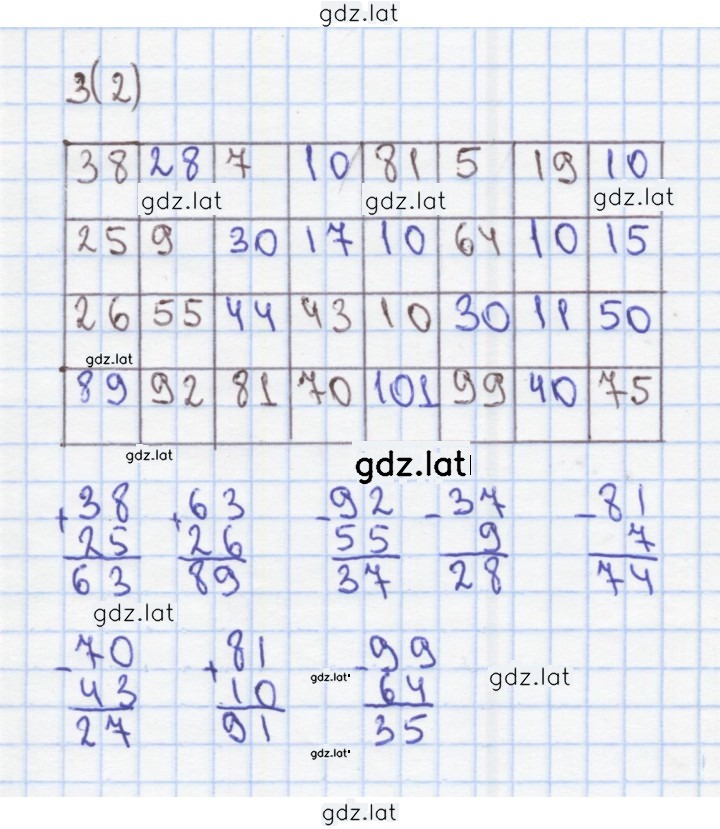 gdz.lat
3(2)
38 28 7 10 81 5 19 10
gdz.lat gdz.lat gdz.lat
25 9 30 17 10 64 10 15
26 55 44 43 10 30 11 50
gdz.lat
89 92 81 70 101 99 40 75
gdz.lat gdz.lat
+38 +63 -92 -37 -81
25 26 55 9 7
63 89 37 28 74
gdz.lat
-70 +81 -99
gdz.lat gdz.lat
43 10 64
27 91 35
gdz.lat
gdz.lat